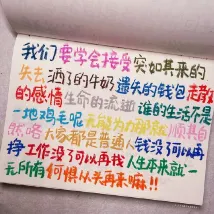 我们要学会接受突如其来的
失去 洒了的牛奶 遗失的钱包 走散
的感情 生命的流逝 谁的生活是
一地鸡毛呢 无能为力那就顺其自
然咯 大家都是普通人 钱没了可以再
挣 工作没了可以再找 人生本来就一
无所有 何惧从头再来嘛!!